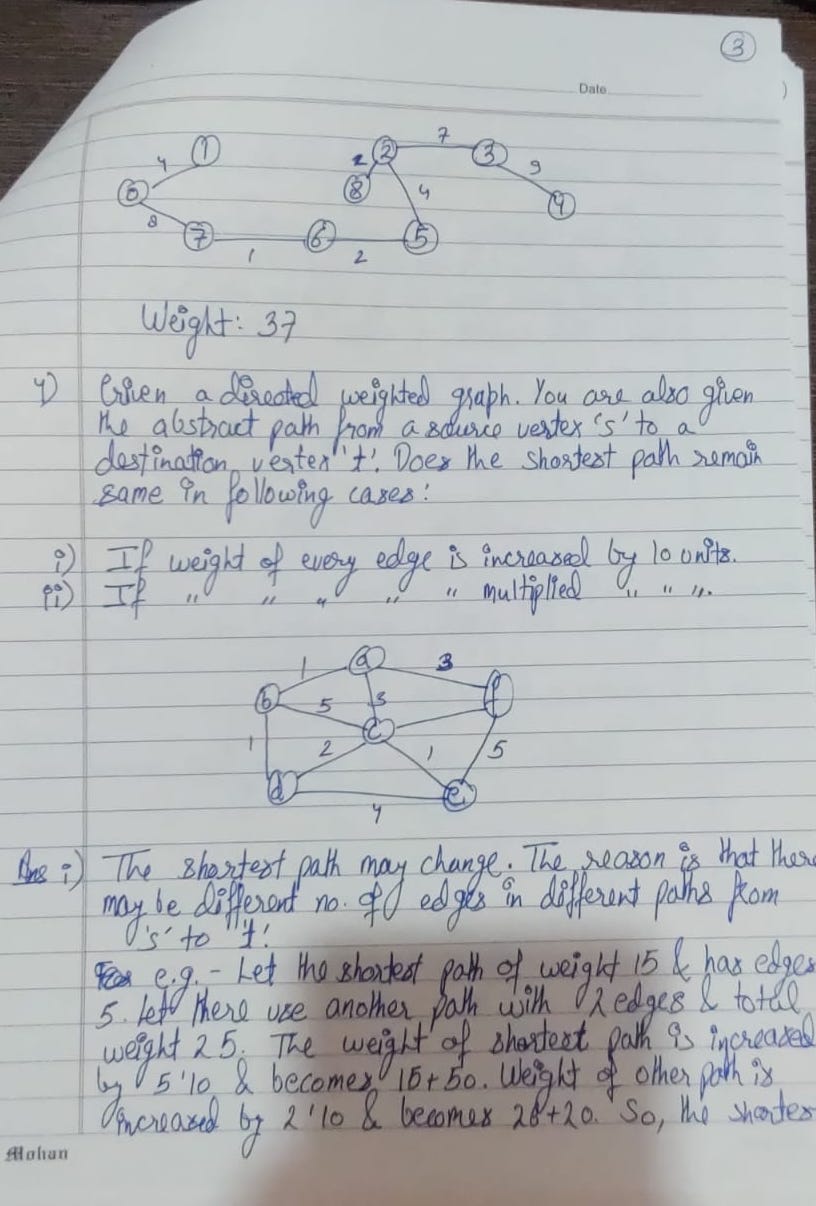 3
Date
1
4
0
8
7
1
6
2
5
4
2
8
2
7
3
9
4
Weight: 37
4) Given a directed weighted graph. You are also given
the abstract path from a source vertex 's' to a
destination vertex 't'. Does the shortest path remain
same in following cases:
i) If weight of every edge is increased by 10 units.
ii) If " " " " " multiplied " " ".
a
1
3
b
5
3
f
c
1
2
1
5
d
e
4
Ans i) The shortest path may change. The reason is that there
may be different no. of edges in different paths from
's' to 't'.
e.g. - Let the shortest path of weight 15 & has edges
5. Let there use another path with 2 edges & total
weight 25. The weight of shortest path is increased
by 5'10 & becomes 15+50. Weight of other path is
increased by 2'10 & becomes 25+20. So, the shortes
Mohan